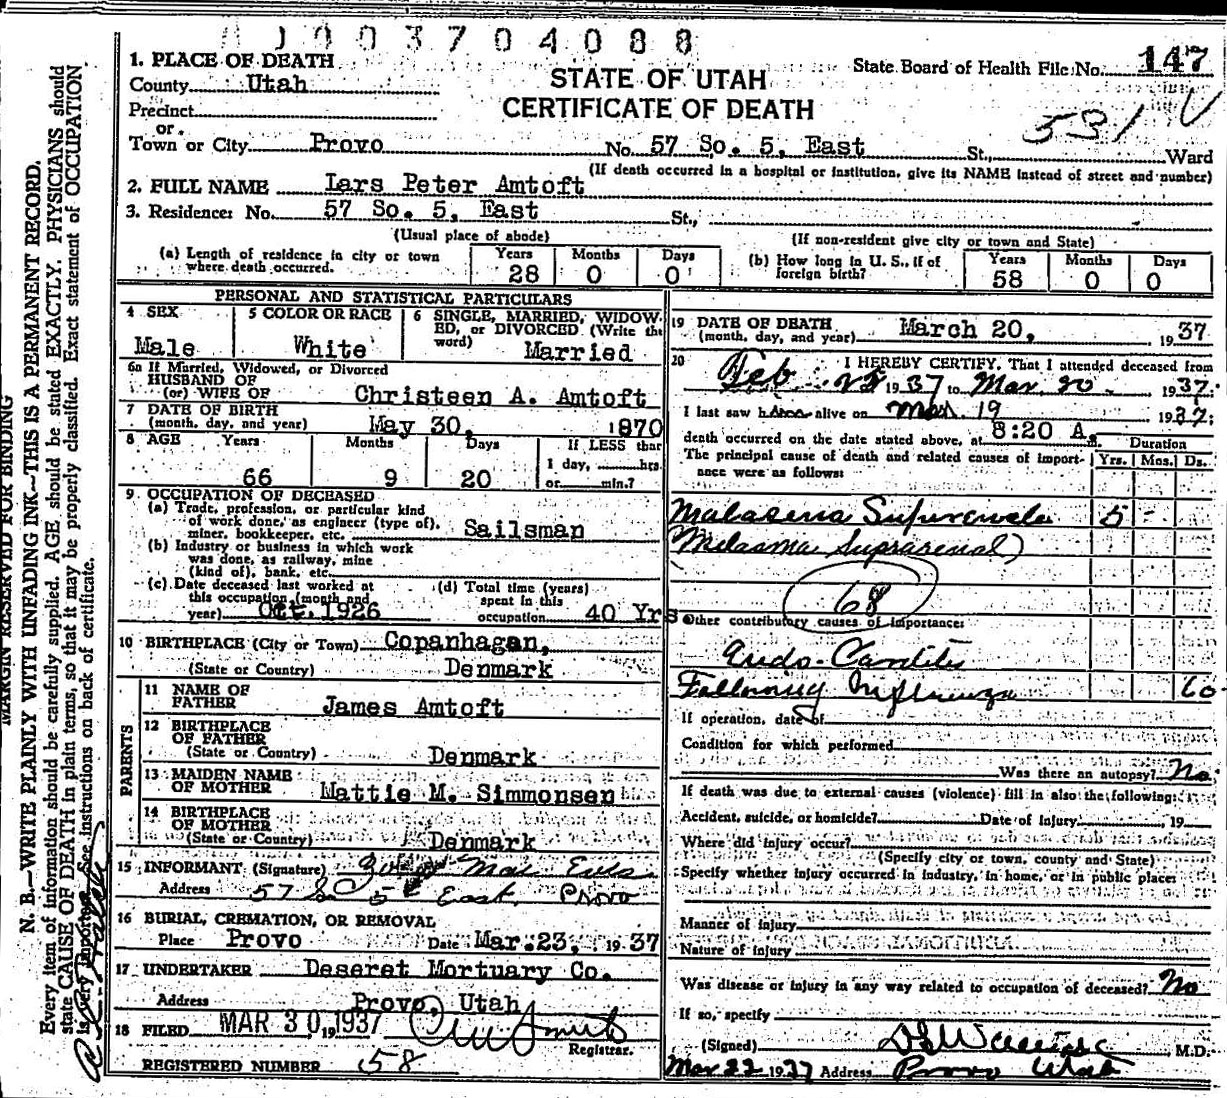 0 0 3 7 0 4 0 8 8
1. PLACE OF DEATH
County Utah
Precinct
or
Town or City Provo
STATE OF UTAH
CERTIFICATE OF DEATH
State Board of Health File No. 147
531
No. 57 So. 5, East St., Ward
(If death occurred in a hospital or institution, give its NAME instead of street and number)
2. FULL NAME Lars Peter Amtoft
3. Residence: No. 57 So. 5, East St.,
(Usual place of abode)
(If non-resident give city or town and State)
(a) Length of residence in city or town where death occurred. Years 28 Months 0 Days 0
(b) How long in U. S., if of foreign birth? Years 58 Months 0 Days 0
PERSONAL AND STATISTICAL PARTICULARS
4 SEX Male
5 COLOR OR RACE White
6 SINGLE, MARRIED, WIDOWED, or DIVORCED (Write the word) Married
6a If Married, Widowed, or Divorced
HUSBAND OF
(or) WIFE OF Christeen A. Amtoft
7 DATE OF BIRTH
(month, day, and year) May 30, 1870
8 AGE Years 66 Months 9 Days 20
If LESS than
1 day, hrs.
or min.?
9 OCCUPATION OF DECEASED
(a) Trade, profession, or particular kind
of work done, as engineer (type of),
miner, bookkeeper, etc. Sailsman
(b) Industry or business in which work
was done, as railway, mine
(kind of), bank, etc.
(c) Date deceased last worked at
this occupation (month and
year) Oct. 1926
(d) Total time (years)
spent in this
occupation 40 Yrs
10 BIRTHPLACE (City or Town) Copanhagan,
(State or Country) Denmark
PARENTS
11 NAME OF
FATHER James Amtoft
12 BIRTHPLACE
OF FATHER
(State or Country) Denmark
13 MAIDEN NAME
OF MOTHER Mattie M. Simmonsen
14 BIRTHPLACE
OF MOTHER
(State or Country) Denmark
15 INFORMANT (Signature) Mae
Address 57 So 5 East, Provo
16 BURIAL, CREMATION, OR REMOVAL
Place Provo Date Mar. 23, 1937
17 UNDERTAKER Deseret Mortuary Co.
Address Provo, Utah
18 FILED MAR 30, 1937
Registrar.
REGISTERED NUMBER 58
19 DATE OF DEATH
(month, day, and year) March 20, 1937
20 I HEREBY CERTIFY, That I attended deceased from
Feb 1937 to Mar. 20 1937:
I last saw alive on Mar 19 1937;
death occurred on the date stated above, at 8:20 A.
The principal cause of death and related causes of importance were as follows:
Duration
Yrs. Mos. Ds.
5 -
Suprarenal)
68
Other contributory causes of importance:
Endo-Carditis
Following Influenza 60
If operation, date of
Condition for which performed
Was there an autopsy? No
If death was due to external causes (violence) fill in also the following:
Accident, suicide, or homicide? Date of injury, 19
Where did injury occur?
(Specify city or town, county and State)
Specify whether injury occurred in industry, in home, or in public place:
Manner of injury
Nature of injury
Was disease or injury in any way related to occupation of deceased? No
If so, specify
(Signed) M.D.
Mar 22 1937 Address Provo Utah
MARGIN RESERVED FOR BINDING
N. B.—WRITE PLAINLY WITH UNFADING INK—THIS IS A PERMANENT RECORD.
Every item of information should be carefully supplied. AGE should be stated EXACTLY. PHYSICIANS should
state CAUSE OF DEATH in plain terms, so that it may be properly classified. Exact statement of OCCUPATION
is very important. See instructions on back of certificate.